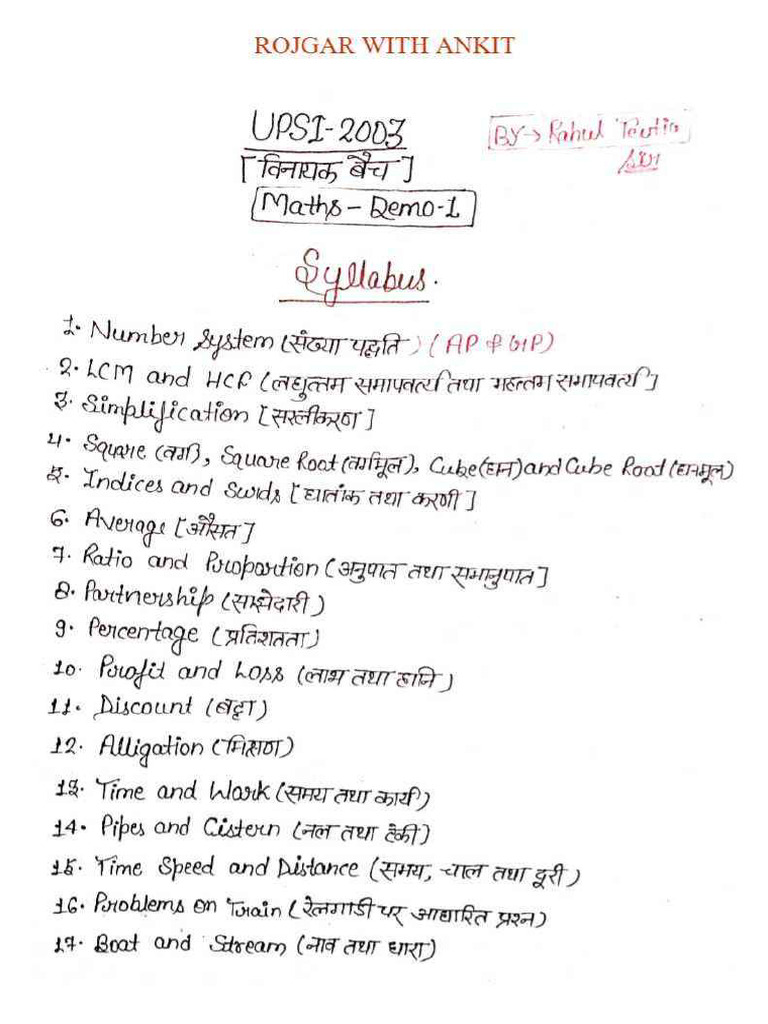 ROJGAR WITH ANKIT
UPSI-2003
BY→ Rahul Teotia
Sir
[विनायक बैच]
Maths - Demo-1
Syllabus.
1. Number System (संख्या पद्धति) (AP & GP)
2. LCM and HCF (लघुत्तम समापवर्त्य तथा महत्तम समापवर्त्य]
3. Simplification [सरलीकरण]
4. Square (वर्ग), Square Root (वर्गमूल), Cube (घन) and Cube Rood (घनमूल)
5. Indices and Surds [घातांक तथा करणी]
6. Average [औसत]
7. Ratio and Proportion (अनुपात तथा समानुपात]
8. Partnership (साझेदारी)
9. Percentage (प्रतिशतता)
10. Profit and Loss (लाभ तथा हानि)
11. Discount (बट्टा)
12. Alligation (मिश्रण)
13. Time and Work (समय तथा कार्य)
14. Pipes and Cistern (नल तथा टंकी)
15. Time Speed and Distance (समय, चाल तथा दूरी)
16. Problems on Train (रेलगाडी पर आधारित प्रश्न)
17. Boat and Stream (नाव तथा धारा)